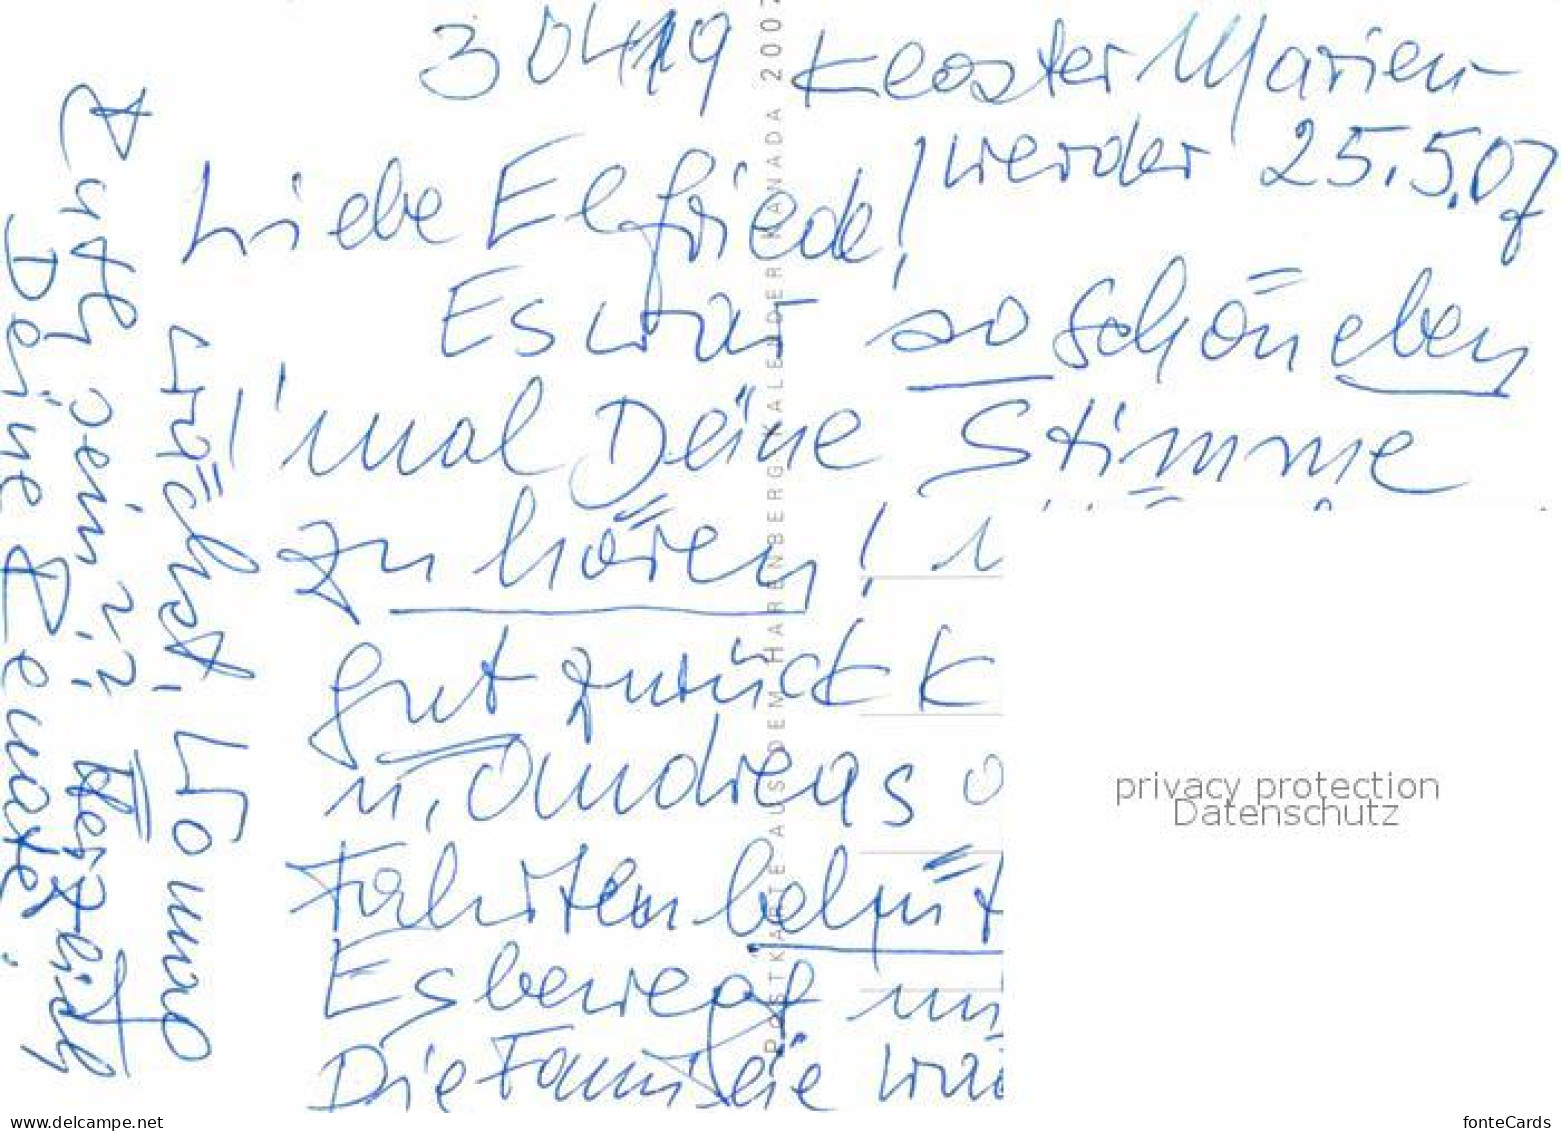 30419 Kloster Marien-
werder 25.5.07
Liebe Elfriede!
Es war so schön eben
'mal Deine Stimme
zu hören!
gut zurück k
u. Andreas
Fahrten behüt
Es bewegt
Die Familie wäc
wächst, wo mal
Ruth sein?? Herzlich
Deine Renate.
POSTKARTE AUS DEM HARENBERG KALENDER KANADA 2007
privacy protection
Datenschutz
www.delcampe.net
fonteCards